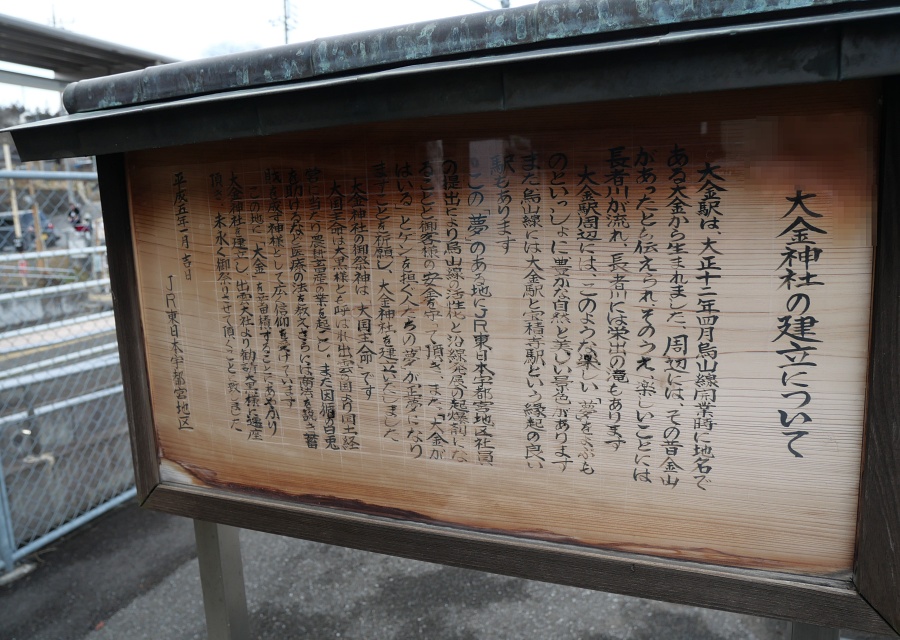 大金神社の建立について
大金駅は、大正十二年四月烏山線開業時に地名で
ある大金から生まれました。周辺には、その昔金山
があったと伝えられ、そのうえ、楽しいことには
長者川が流れ、長者川には栄出の竜もあります
大金駅周辺には、このような楽しい「夢をよぶも
の」といっしょに豊かな自然と美しい景色があります
また烏山線には大金駅と宝積寺駅という縁起の良い
駅もあります
この「夢」のある地にJR東日本宇都宮地区社員
の提出により烏山線の活性化と沿線発展の起爆剤にな
ることと御客様の安全を守って頂き、また「大金が
はいる」とゲンを担ぐ人たちの夢が正夢になり
ますことを祈願し、大金神社を建立いたしました
大金神社の御祭神は「大国主命」です
大国主命は大黒様とも呼ばれ出雲国より国土経
営に当たり農耕畜産の業を起こし、また因幡の白兎
を助けるなど医療の法を教えさらには商法を説き蓄
財を守る神様として広く信仰を受けています
この地に「大金」を
大金神社を建立し、出雲大社より
頂き、末永く御祭りさせて頂くことと致しました
平成五年一月吉日
JR東日本宇都宮地区